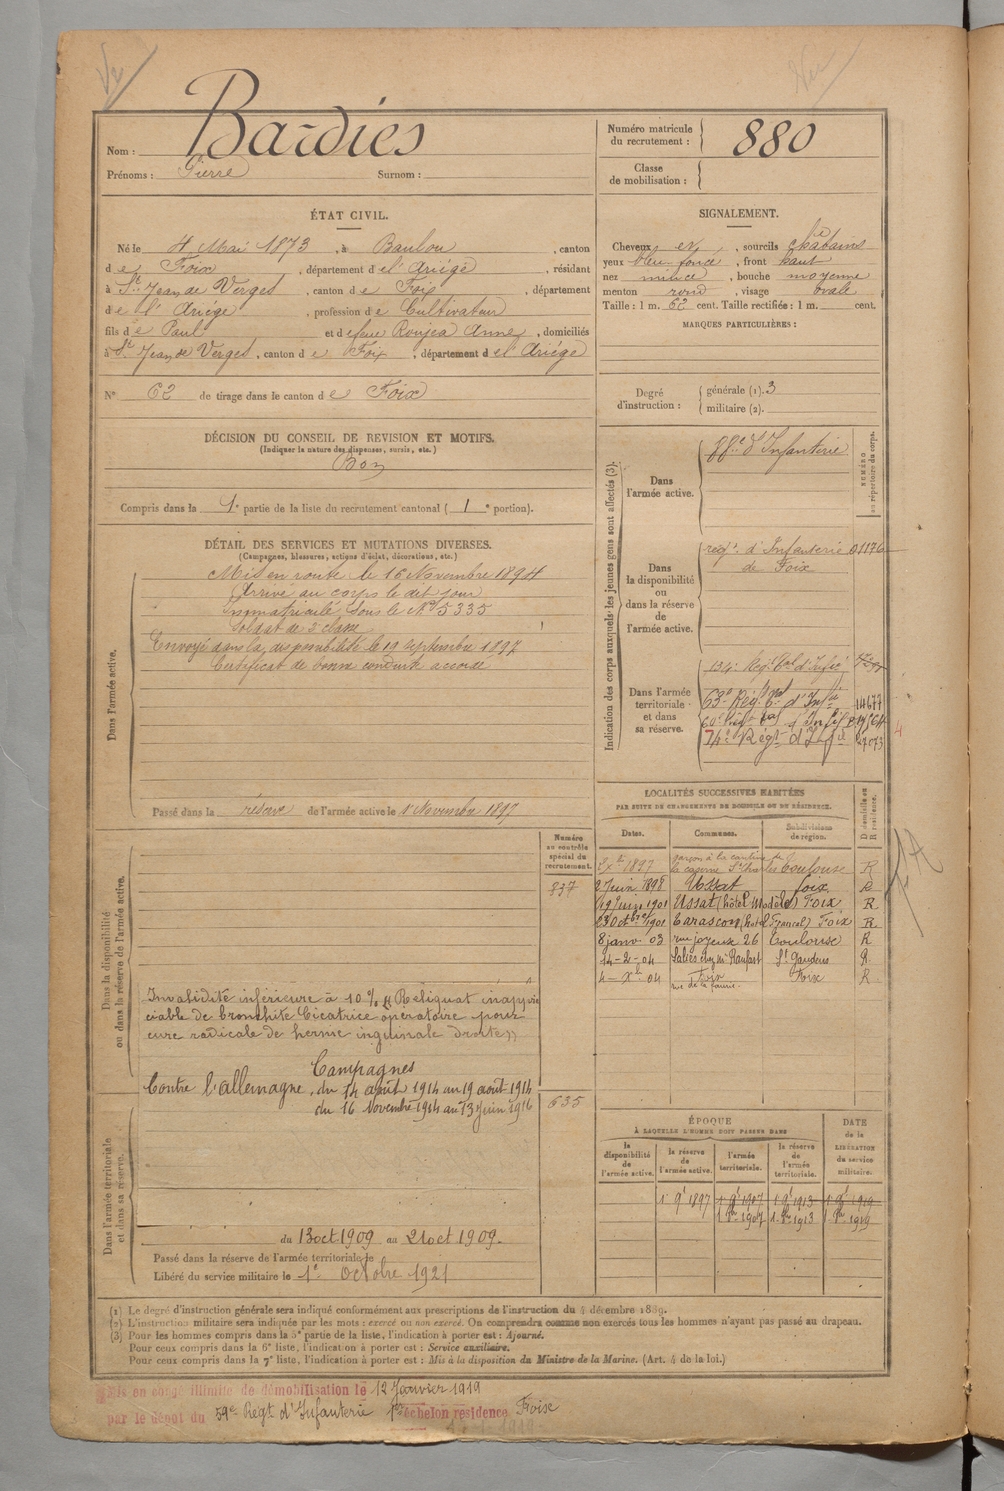 Bardiès
Nom :
Prénoms : Pierre Surnom :
Numéro matricule du recrutement : 880
Classe de mobilisation :
ÉTAT CIVIL.
Né le 4 Mai 1873, à Baulou, canton
de Foix, département de l'Ariège, résidant
à St Jean de Verges, canton de Foix, département
de l'Ariège, profession de Cultivateur
fils de Paul et de feue Roujea Anne, domiciliés
à St Jean de Verges, canton de Foix, département de l'Ariège
N° 62 de tirage dans le canton de Foix
SIGNALEMENT.
Cheveux et, sourcils châtains
yeux bleu foncé, front haut
nez mince, bouche moyenne
menton rond, visage ovale
Taille : 1 m. 62 cent. Taille rectifiée : 1 m. cent.
MARQUES PARTICULIÈRES :
Degré d'instruction : générale (1). 3
militaire (2).
DÉCISION DU CONSEIL DE REVISION ET MOTIFS.
(Indiquer la nature des dispenses, sursis, etc.)
Bon
Compris dans la 1e partie de la liste du recrutement cantonal (1e portion).
DÉTAIL DES SERVICES ET MUTATIONS DIVERSES.
(Campagnes, blessures, actions d'éclat, décorations, etc.)
Dans l'armée active.
Mis en route le 16 Novembre 1894
Arrivé au corps le dit jour
Immatriculé sous le No 5335
Soldat de 2e classe
Envoyé dans la disponibilité le 19 Septembre 1897
Certificat de bonne conduite accordé
Passé dans la réserve de l'armée active le 1 Novembre 1897
Indication des corps auxquels les jeunes gens sont affectés (3).
NUMÉRO au répertoire du corps.
Dans l'armée active.
88e d'Infanterie
Dans la disponibilité ou dans la réserve de l'armée active.
régt d'Infanterie 01176
de Foix
Dans l'armée territoriale et dans sa réserve.
134e Régt tal d'Infie
63e Rég. tal d'Infie 14677
60e Régt tal d'Infie
74e Régt d'Infie
4
LOCALITÉS SUCCESSIVES HABITÉES
PAR SUITE DE CHANGEMENTS DE DOMICILE OU DE RÉSIDENCE.
Dates. Communes. Subdivisions de région. D domicile ou R résidence.
garçon à la cantine de
Xbre 1897 la caserne St Charles Toulouse R
2 Juin 1898 Ussat Foix R
19 Juin 1901 Ussat (hôtel Modèle) Foix R
23 Octbre 1901 Tarascon (hotel Francal) Foix R
8 janv. 03 rue joyeux 26 Toulouse R
14-2-04 Salies chez Mr St Gaudens R.
4-Xbre 04 Foix Foix R
Numéro au contrôle spécial du recrutement.
837
635
Dans la disponibilité ou dans la réserve de l'armée active.
Invalidité inférieure à 10 % "Reliquat inappré
ciable de bronchite Cicatrice opératoire pour
cure radicale de hernie inguinale droite"
Campagnes
Contre l'allemagne, du 14 août 1914 au 19 août 1914
du 16 Novembre 1914 au 13 Juin 1916
Dans l'armée territoriale et dans sa réserve.
du 13 oct 1909 au 21 oct 1909.
Passé dans la réserve de l'armée territoriale le
Libéré du service militaire le 1er Octobre 1921
ÉPOQUE
À LAQUELLE L'HOMME DOIT PASSER DANS
DATE de la LIBÉRATION du service militaire.
la disponibilité de l'armée active. la réserve de l'armée active. l'armée territoriale. la réserve de l'armée territoriale.
1 9e 1897 1 9e 1907 1 9e 1913 1 9e 1919
1 8bre 1907 1 8bre 1913 1 8bre 1919
(1) Le degré d'instruction générale sera indiqué conformément aux prescriptions de l'instruction du 4 décembre 1889.
(2) L'instruction militaire sera indiquée par les mots : exercé ou non exercé. On comprendra comme non exercés tous les hommes n'ayant pas passé au drapeau.
(3) Pour les hommes compris dans la 5e partie de la liste, l'indication à porter est : Ajourné.
Pour ceux compris dans la 6e liste, l'indication à porter est : Service auxiliaire.
Pour ceux compris dans la 7e liste, l'indication à porter est : Mis à la disposition du Ministre de la Marine. (Art. 4 de la loi.)
Mis en congé illimité de démobilisation le 12 Janvier 1919
par le dépôt du 59e Régt d'Infanterie 1er échelon résidence Foix